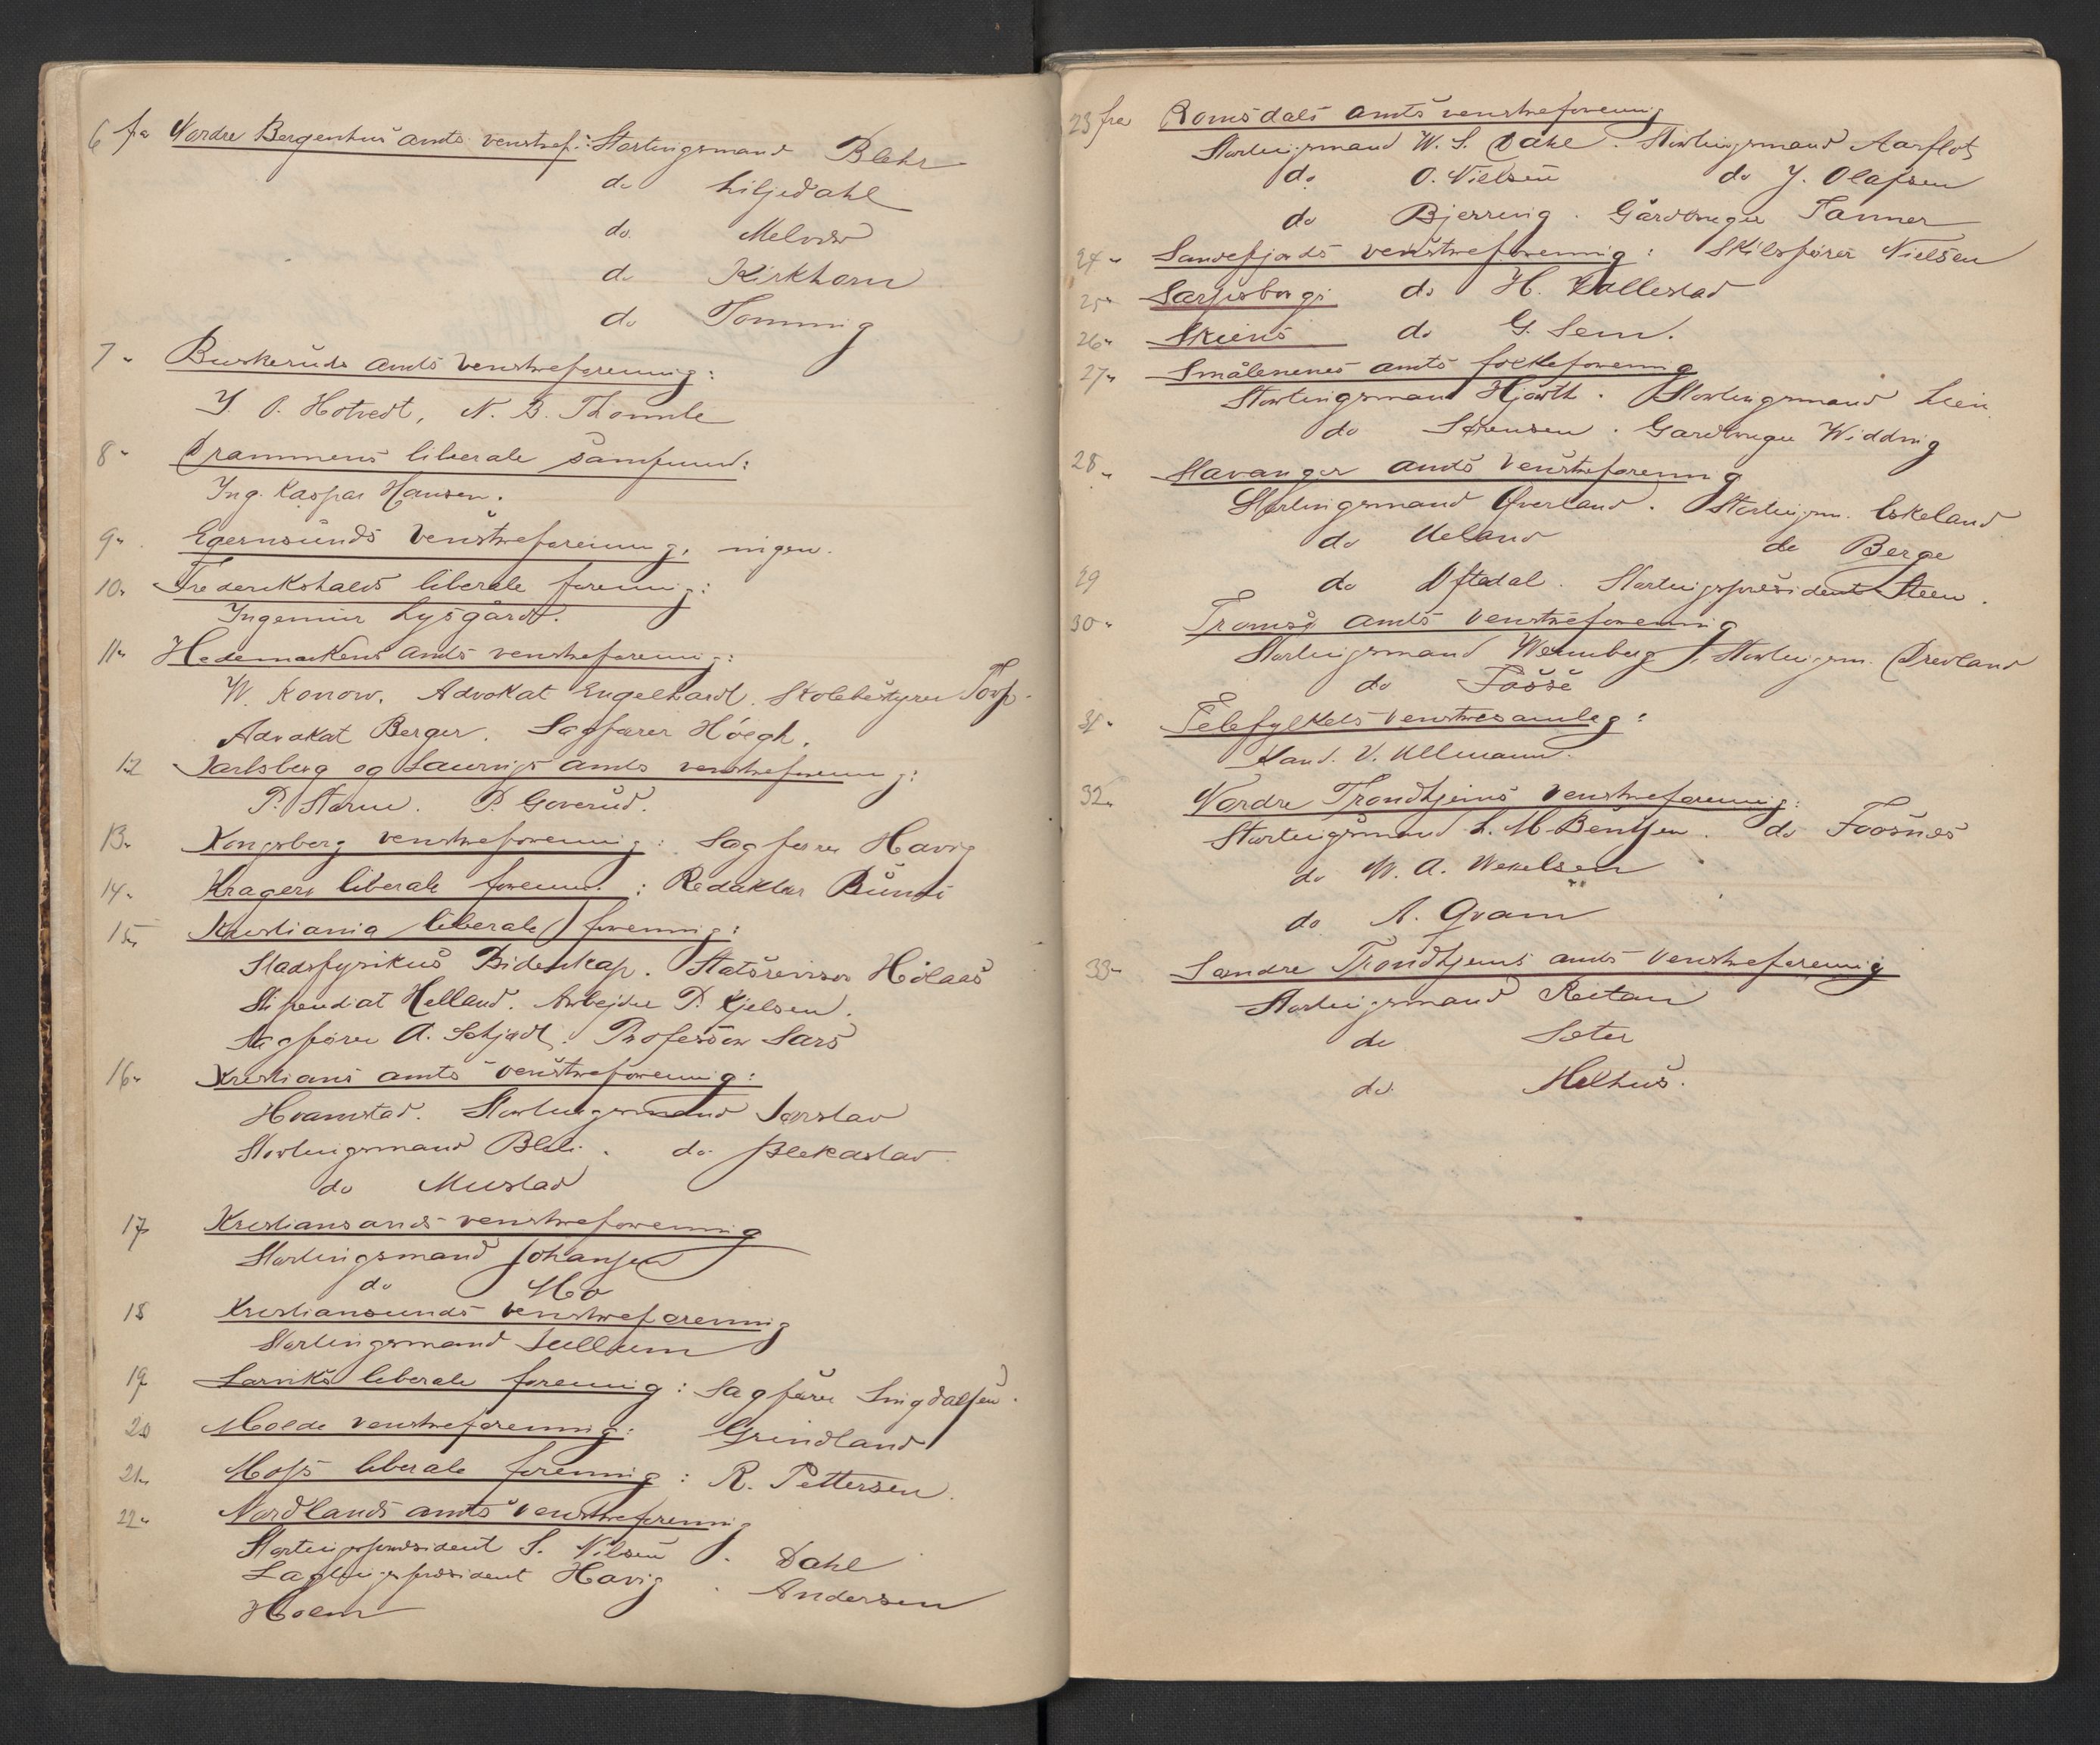 6 fra Nordre Bergenhus amts venstref.: Stortingsmand Blehr
do Liljedahl
do. Melvær
do Kirkhorn
do Tonning
7 " Buskeruds amts venstreforening:
J. O. Hotvedt, N. B. Thommle
8 " Drammens liberale samfund:
Ing. Kaspar Hansen.
9 " Egersunds venstreforening, ingen.
10 " Frederikshalds liberale forening:
Ingeniør Lysgård.
11 " Hedemarkens amts venstreforening:
W. Konow. Advokat Engelhardt. Skolebestyrer Torp.
Advokat Berger. Sagfører Høegh.
12 Jarlsberg og Laurvigs amts venstreforening:
P. Starue. P. Goverud.
13 " Kongsberg venstreforening: Sagfører Havig
14 " Kragerø liberale forening.: Redaktør Bunti
15 " Kristiania liberale forening:
Stadsfysikus Bidenkap. Statsrevisor Hølaas
Stipendiat Helland. Arbejder P. Kjelsen.
Sagfører A. Schjødt. Professor Sars
16 " Kristians amts venstreforening:
Hvamstad. Stortingsmand Jørstad
Stortingsmand Blili. do. Blekastad
do Mustad
17 " Kristiansands venstreforening
Stortingsmand Johansen
do Mo
18 Kristiansunds venstreforening
Stortingsmand Sullum
19 Larviks liberale forening: Sagfører Smigdalsen.
20 Molde venstreforening: Grindland
21 " Moss liberale forening: R. Pettersen.
22 " Nordlands amts venstreforening
Stortingspræsident S. Nilsen. Dahl
Lagtingspræsident Havig. Andersen
Holm
23 fra Romsdals amts venstreforening
Stortingsmand W. S. Dahl. Stortingsmand Aarflot
do. O. Nielsen do J. Olafsen
do Bjerring. Gårdbruger Tanner
24 " Sandefjords venstreforening: Skibsfører Nielsen
25 " Sarpsborgs do H. Vallestad
26 " Skiens do G. Sem.
27 " Smålenenes amts folkeforening
Stortingsmand Hjorth. Stortingsmand Lien
do Sørensen. Gardbruger Widding
28 " Stavanger amts venstreforening
Stortingsmand Qverland. Stortingm. Eskeland
do Ueland do Berge
29 do Oftedal. Stortingspræsident Steen.
30 " Tromsø amts venstreforening
Stortingsmand Wennberg. Stortingsm. Drevland
do Fosse
31 " Telefylkets venstresamlag:
Kand. V. Ullmann.
32 " Nordre Trondhjems venstreforening:
Stortingsmand L. M. Bentsen. do Foosnæs
do W. A. Wexelsen
do A. Qvam
33 " Søndre Trondhjems amts venstreforening
Stortingsmand Reitan
do Sæter
do. Melhus.